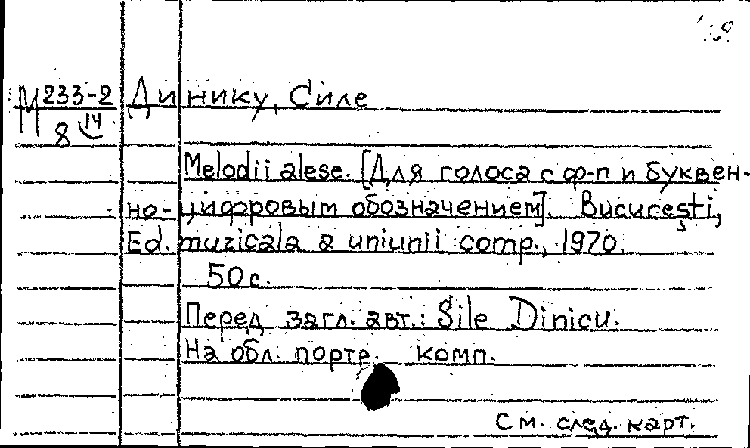 М 233-2
8 14
Динику, Силе
Melodii alese. [Для голоса с ф-п и буквен-
но-цифровым обозначением]. Bucureşti,
Ed. muzicala a uniunii comp., 1970.
50 с.
Перед загл. авт.: Sile Dinicu.
На обл. портр. комп.
См. след. карт.